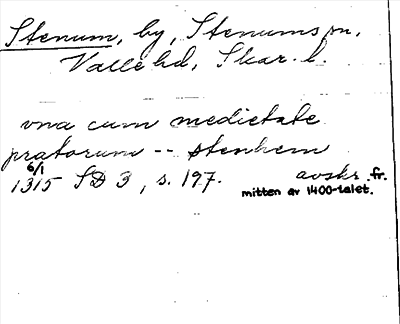 Stenum, by, Stenums sn,
Valle hd, Skar. l.
vna cum medietate
pratorum -- stenhem
6/1
1315 SD 3, s. 197. avskr. fr.
mitten av 1400-talet.